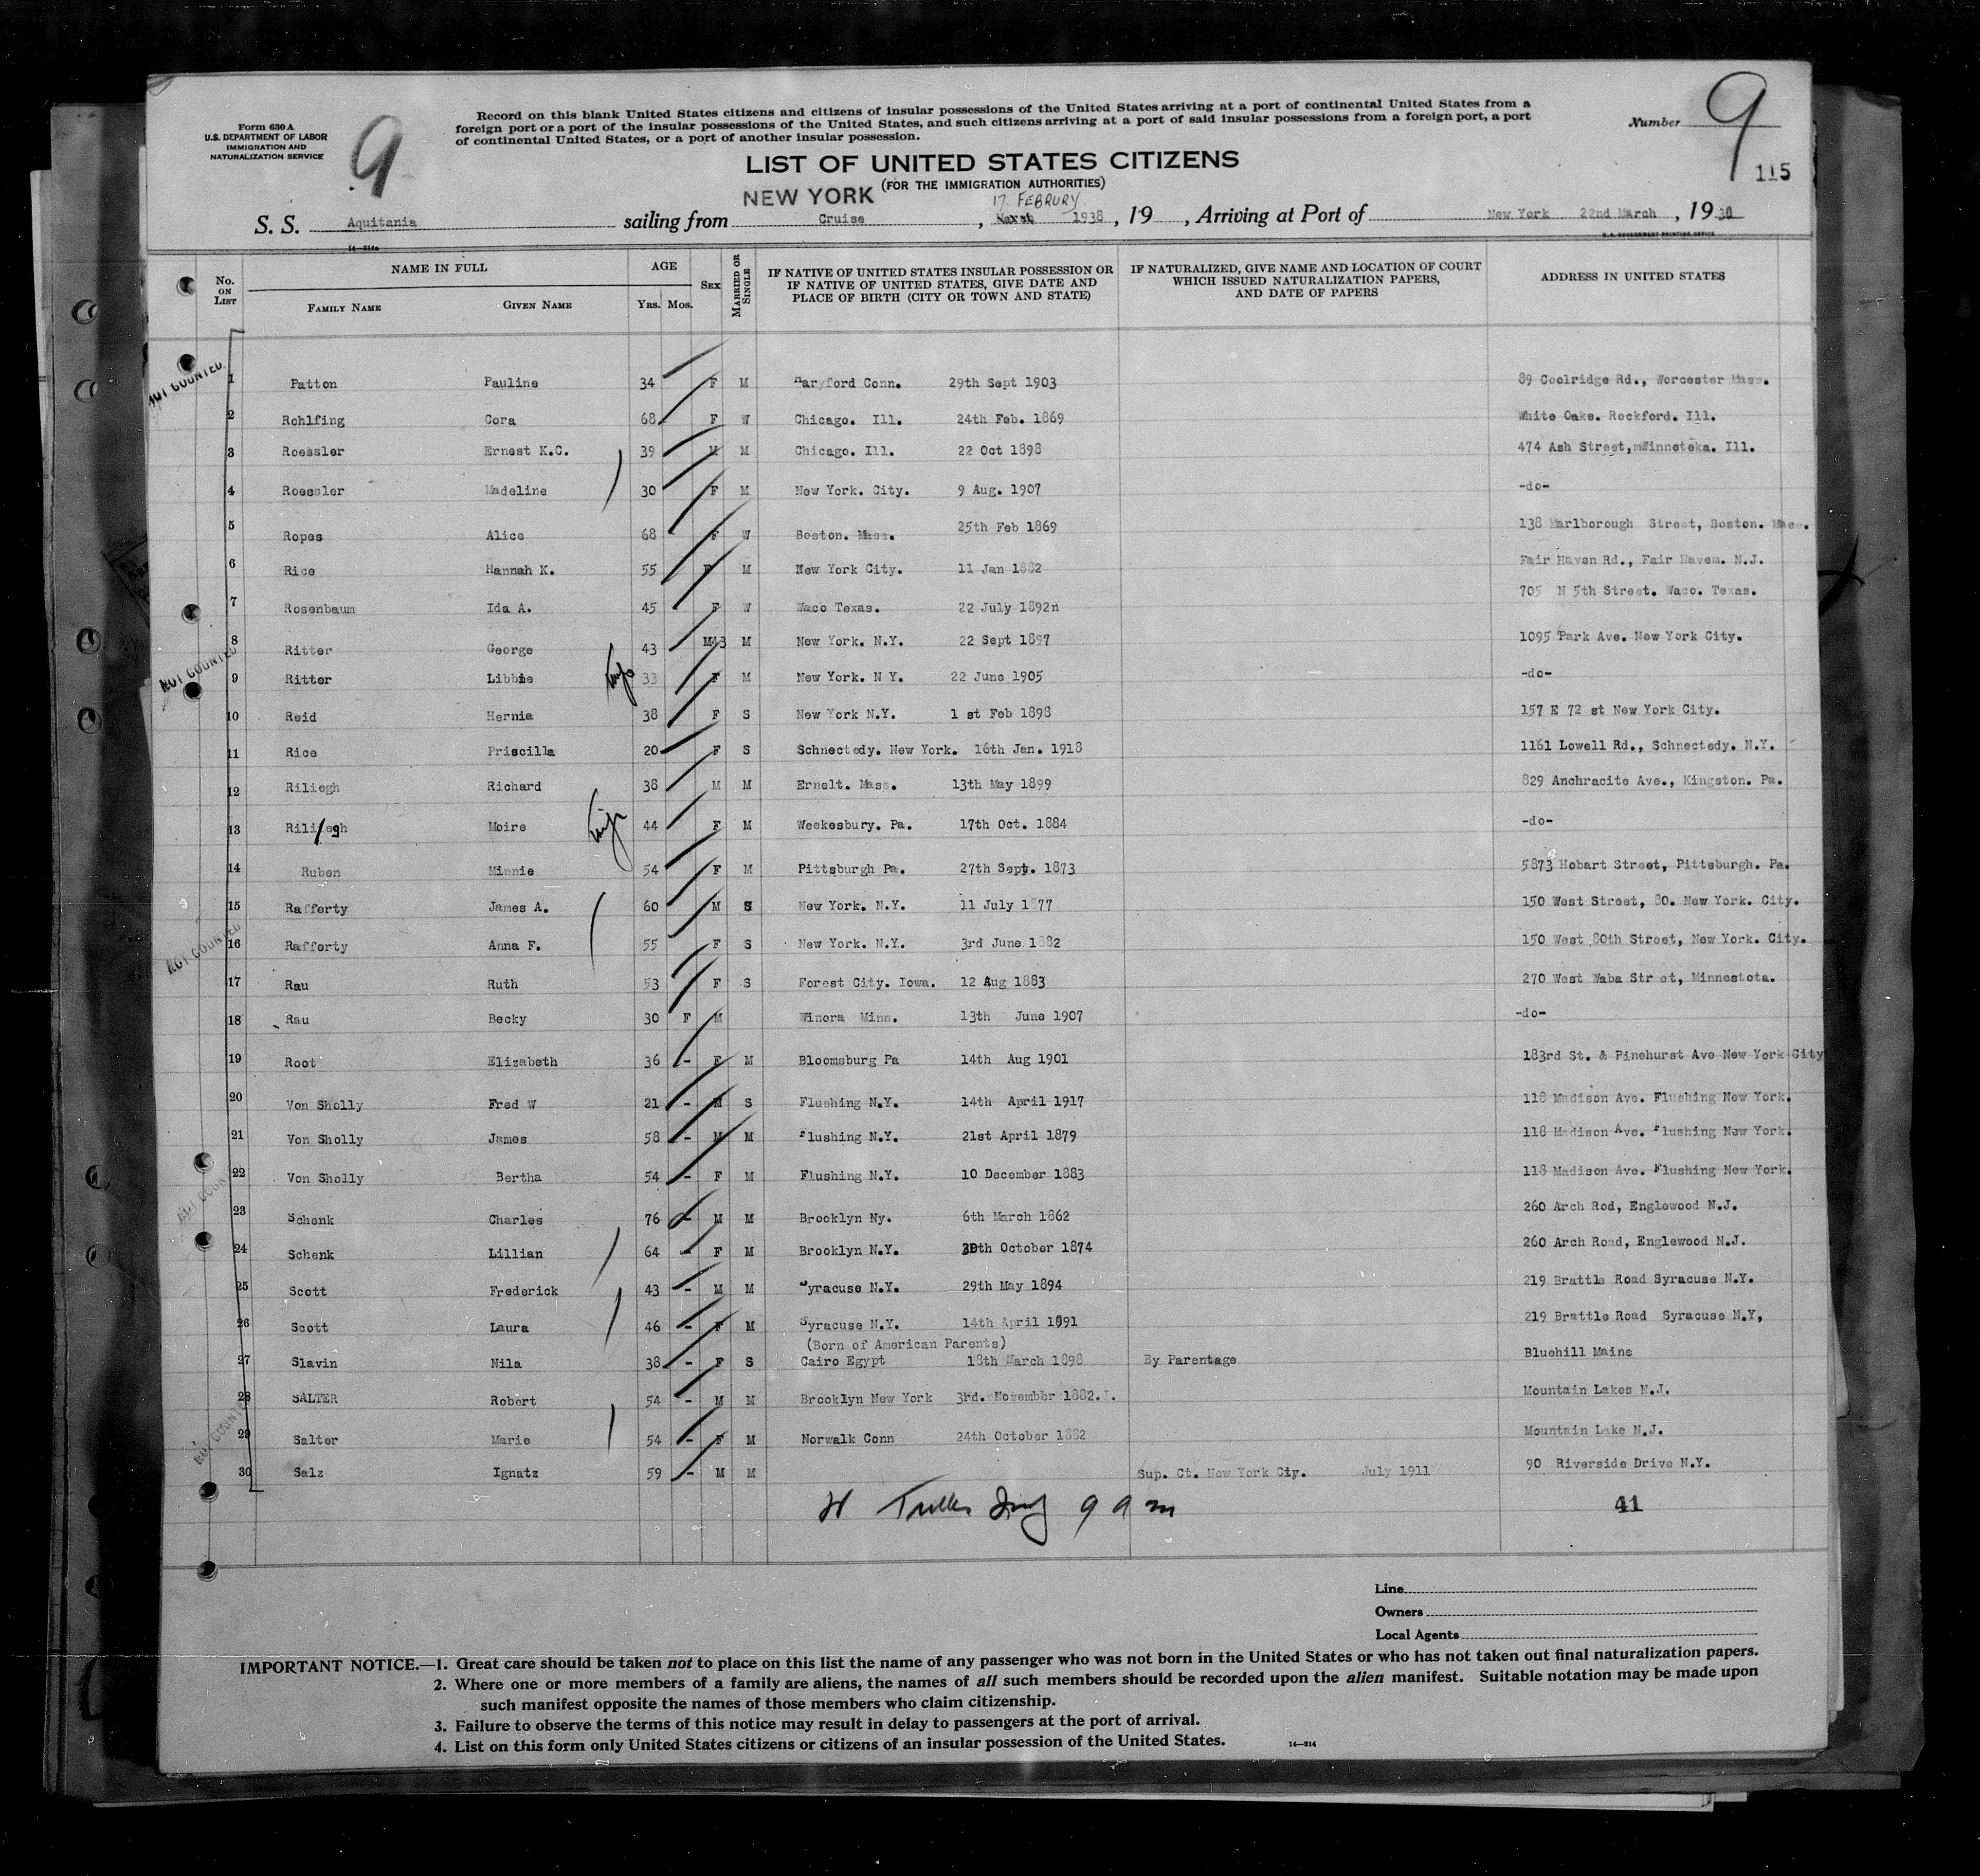 Form 630 A
U.S. DEPARTMENT OF LABOR
IMMIGRATION AND
NATURALIZATION SERVICE
9
Record on this blank United States citizens and citizens of insular possessions of the United States arriving at a port of continental United States from a
foreign port or a port of the insular possessions of the United States, and such citizens arriving at a port of said insular possessions from a foreign port, a port
of continental United States, or a port of another insular possession.
Number 9
115
LIST OF UNITED STATES CITIZENS
(FOR THE IMMIGRATION AUTHORITIES)
NEW YORK 17 FEBRURY
S. S. Aquitania sailing from Cruise, 1938, 19, Arriving at Port of New York 22nd March, 19
14—214a
U.S. GOVERNMENT PRINTING OFFICE
No. ON LIST NAME IN FULL FAMILY NAME GIVEN NAME AGE YRS. MOS. SEX MARRIED OR SINGLE IF NATIVE OF UNITED STATES INSULAR POSSESSION OR IF NATIVE OF UNITED STATES, GIVE DATE AND PLACE OF BIRTH (CITY OR TOWN AND STATE) IF NATURALIZED, GIVE NAME AND LOCATION OF COURT WHICH ISSUED NATURALIZATION PAPERS, AND DATE OF PAPERS ADDRESS IN UNITED STATES
NOT COUNTED
1 Patton Pauline 34 F M Haryford Conn. 29th Sept 1903 89 Coolridge Rd., Worcester Mass.
2 Rohlfing Cora 68 F W Chicago. Ill. 24th Feb. 1869 White Oaks. Rockford. Ill.
3 Roessler Ernest K.C. 39 M M Chicago. Ill. 22 Oct 1898 474 Ash Street,mWinneteka. Ill.
4 Roessler Madeline 30 F M New York. City. 9 Aug. 1907 -do-
5 Ropes Alice 68 F W Boston. Mass. 25th Feb 1869 138 Marlborough Street, Boston. Mass.
6 Rice Hannah K. 55 F M New York City. 11 Jan 1882 Fair Haven Rd., Fair Havem. N.J.
7 Rosenbaum Ida A. 45 F W Waco Texas. 22 July 1892n 705 N 5th Street. Waco. Texas.
8 Ritter George 43 M43 M New York. N.Y. 22 Sept 1897 1095 Park Ave. New York City.
NOT COUNTED
9 Ritter Libbie 33 F M New York. N Y. 22 June 1905 -do-
10 Reid Hernia 38 F S New York N.Y. 1 st Feb 1898 157 E 72 st New York City.
11 Rice Priscilla 20 F S Schnectedy. New York. 16th Jan. 1918 1161 Lowell Rd., Schnectedy. N.Y.
12 Riliegh Richard 38 M M Ernelt. Mass. 13th May 1899 829 Anchracite Ave., Kingston. Pa.
13 Riliegh Moire 44 F M Weekesbury. Pa. 17th Oct. 1884 -do-
14 Ruben Minnie 54 F M Pittsburgh Pa. 27th Sept. 1873 5873 Hobart Street, Pittsburgh. Pa.
15 Rafferty James A. 60 M S New York. N.Y. 11 July 1877 150 West Street, 80. New York. City.
NOT COUNTED
16 Rafferty Anna F. 55 F S New York. N.Y. 3rd June 1882 150 West 80th Street, New York. City.
17 Rau Ruth 53 F S Forest City. Iowa. 12 Aug 1883 270 West Waba Str et, Minnestota.
18 Rau Becky 30 F M Winora Minn. 13th June 1907 -do-
19 Root Elizabeth 36 - F M Bloomsburg Pa 14th Aug 1901 183rd St. & Pinehurst Ave New York City
20 Von Sholly Fred W 21 - M S Flushing N.Y. 14th April 1917 118 Madison Ave. Flushing New York.
21 Von Sholly James 58 - M M Flushing N.Y. 21st April 1879 118 Madison Ave. Flushing New York.
22 Von Sholly Bertha 54 - F M Flushing N.Y. 10 December 1883 118 Madison Ave. Flushing New York.
NOT COUNTED
23 Schenk Charles 76 - M M Brooklyn Ny. 6th March 1862 260 Arch Rod, Englewood N.J.
24 Schenk Lillian 64 - F M Brooklyn N.Y. 30th October 1874 260 Arch Road, Englewood N.J.
25 Scott Frederick 43 - M M Syracuse N.Y. 29th May 1894 219 Brattle Road Syracuse N.Y.
26 Scott Laura 46 - F M Syracuse N.Y. 14th April 1891 219 Brattle Road Syracuse N.Y,
(Born of American Parents)
27 Slavin Nila 38 - F S Cairo Egypt 18th March 1898 By Parentage Bluehill Maine
28 SALTER Robert 54 - M M Brooklyn New York 3rd. November 1882. Mountain Lakes N.J.
NOT COUNTED
29 Salter Marie 54 - F M Norwalk Conn 24th October 1882 Mountain Lake N.J.
30 Salz Ignatz 59 - M M Sup. Ct. New York City. July 1911 90 Riverside Drive N.Y.
9 9 m
41
Line
Owners
Local Agents
IMPORTANT NOTICE.—1. Great care should be taken not to place on this list the name of any passenger who was not born in the United States or who has not taken out final naturalization papers.
2. Where one or more members of a family are aliens, the names of all such members should be recorded upon the alien manifest. Suitable notation may be made upon
such manifest opposite the names of those members who claim citizenship.
3. Failure to observe the terms of this notice may result in delay to passengers at the port of arrival.
4. List on this form only United States citizens or citizens of an insular possession of the United States.
14—214